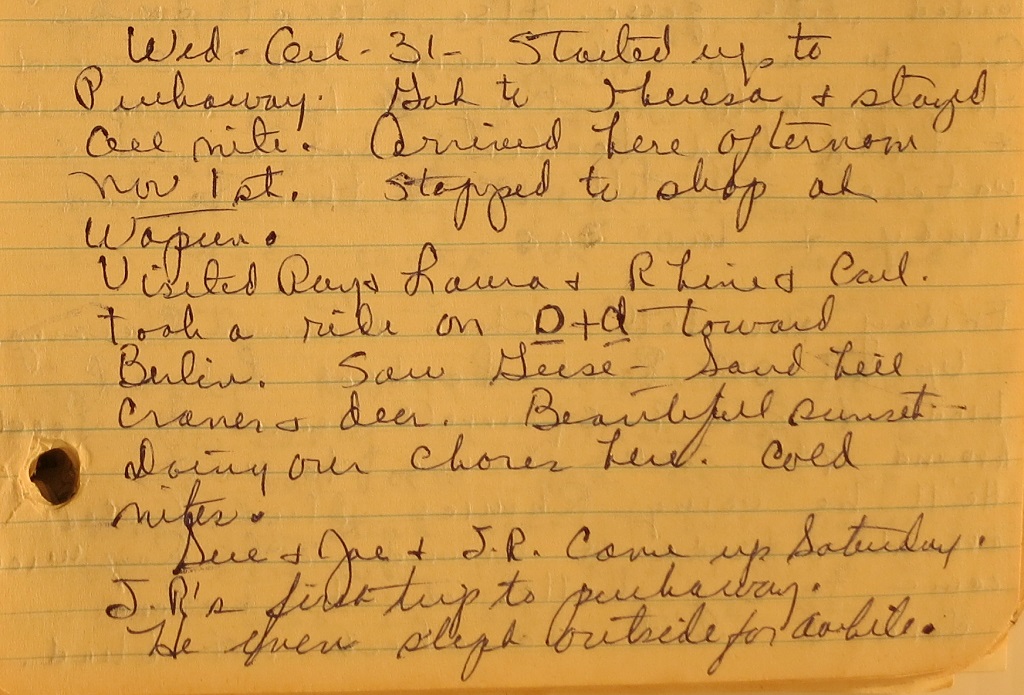 Wed - Oct - 31 - Started up to
Puckaway. Got to Theresa & stayed
all nite. Arrived here afternoon
Nov 1st. Stopped to shop at
Waupun.
Visited Ray & Laura & R Line & Carl.
Took a ride on D + d toward
Berlin. Saw Geese - Sand hill
Cranes & deer. Beautifull sunset -
Doing our chores here. Cold
nites.
Sue & Joe & J.R. Come up Saturday.
J.R's first trip to puckaway.
He even slept outside for awhile.